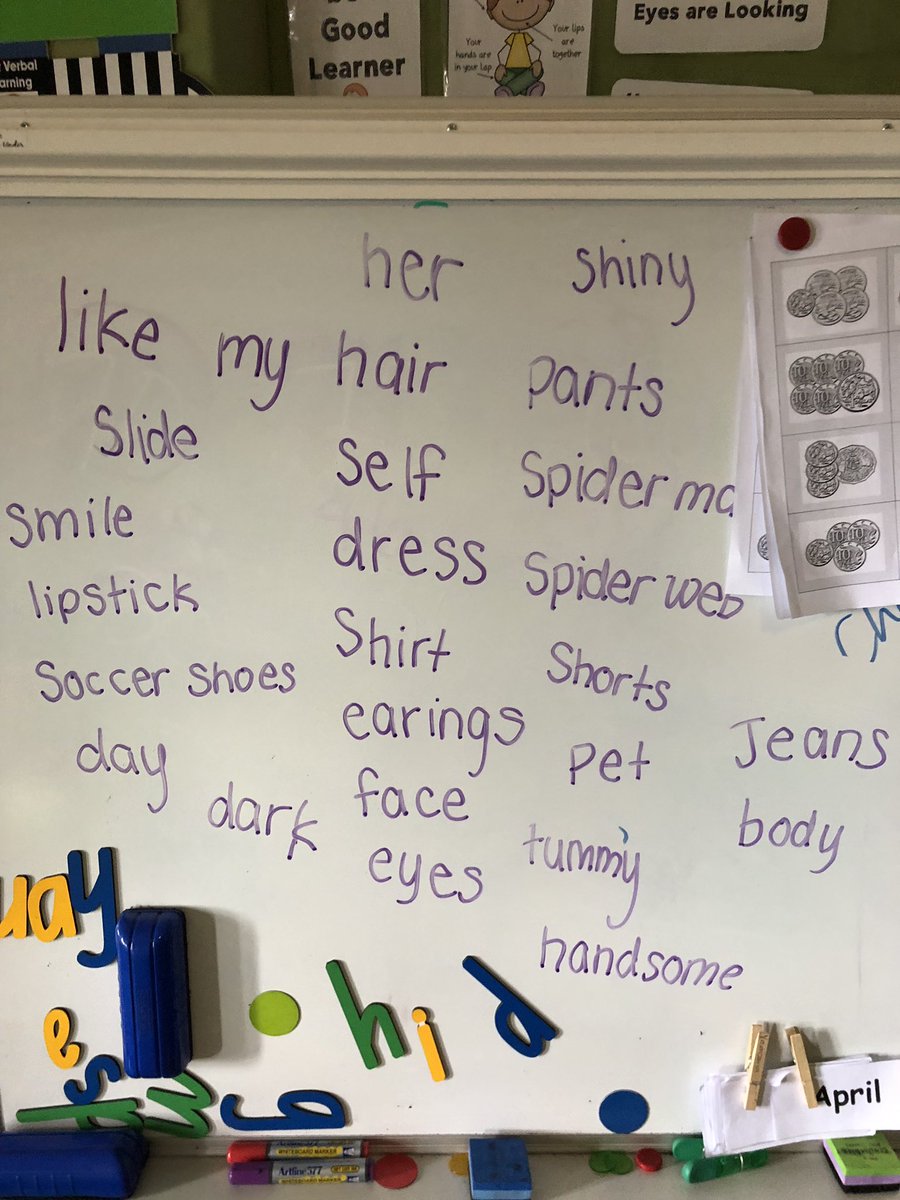 Good
Learner
Verbal
Your
hands are
in your lap
Your lips
are
together
Eyes are Looking
her
shiny
like
my
hair
pants
Slide
self
Spider
smile
dress
lipstick
Spider web
Shirt
Soccer shoes
Shorts
earings
day
pet
Jeans
dark
face
body
tummy
eyes
handsome
ay
h
i
d
e
s
April
Artline 577
WHITEBOARD MARKER